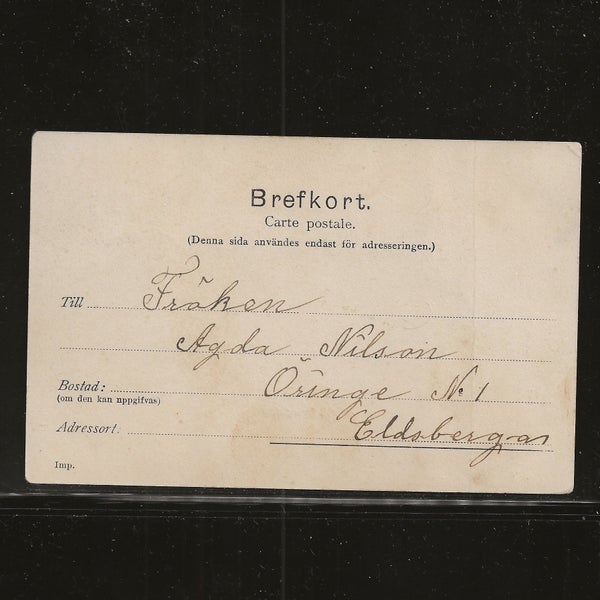 Brefkort.
Carte postale.
(Denna sida användes endast för adresseringen.)
Till Fröken
Agda Nilson
Bostad: Öringe No 1
(om den kan uppgifvas)
Adressort: Eldsberga
Imp.